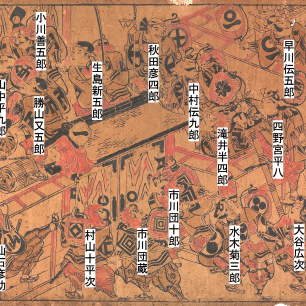 早川伝五郎
四野宮平八
大谷広次
滝井半四郎
水木菊三郎
中村伝九郎
秋田彦四郎
市川団十郎
市川団蔵
生島新五郎
村山十平次
小川善五郎
勝山又五郎